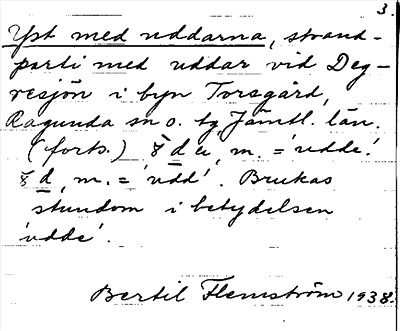 3.
Yst med uddarna, strand-
parti med uddar vid Deg-
resjön i byn Torsgård,
Ragunda sn o. tg, Jämtl. län.
(forts.) m. = 'udde'.
m. = 'udd'. Brukas
stundom i betydelsen
'udde'.
Bertil Flemström 1938.